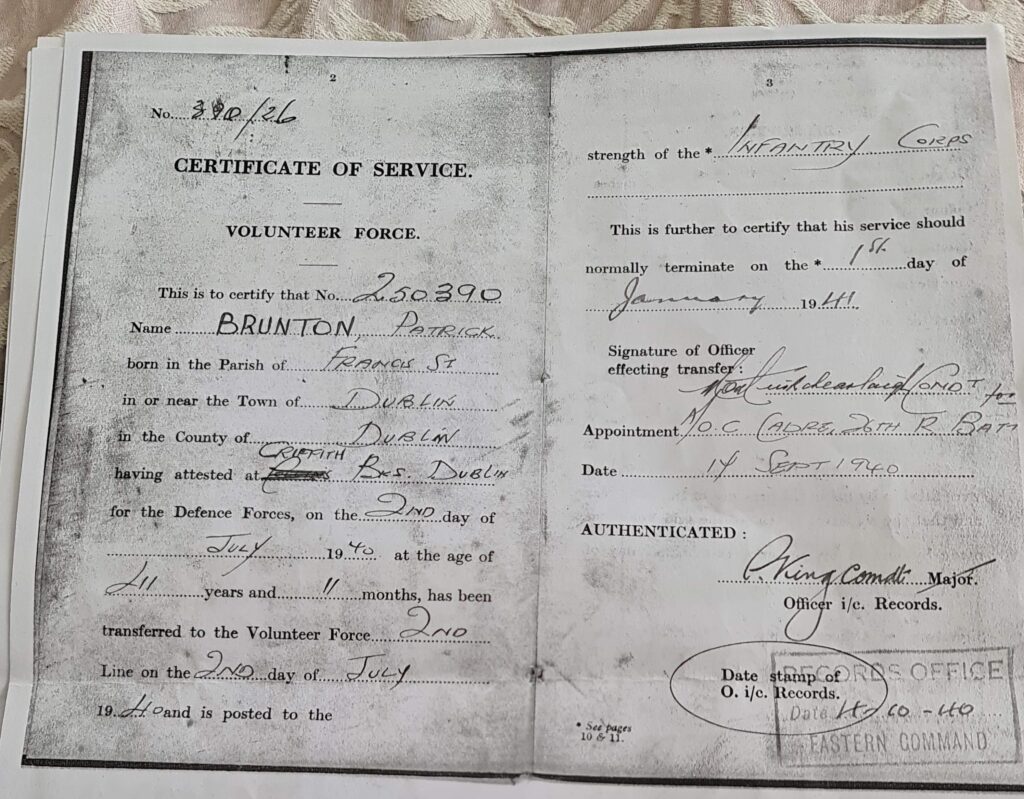 2
No. 390/26
CERTIFICATE OF SERVICE.
VOLUNTEER FORCE.
This is to certify that No. 250390
Name BRUNTON, PATRICK
born in the Parish of FRANCIS ST
in or near the Town of DUBLIN
in the County of DUBLIN
GRIFFITH
having attested at BKS. DUBLIN
for the Defence Forces, on the 2ND day of
JULY 1940 at the age of
41 years and 11 months, has been
transferred to the Volunteer Force 2ND
Line on the 2ND day of JULY
1940 and is posted to the
3
strength of the * INFANTRY CORPS
This is further to certify that his service should
normally terminate on the * 1st day of
January 1941.
Signature of Officer
effecting transfer :
COMDT for
Appointment O.C CADRE, 26TH R BATT
Date 14 SEPT 1940
AUTHENTICATED :
P. King Comdt Major.
Officer i/c. Records.
Date stamp of
O. i/c. Records.
RECORDS OFFICE
Date 4-10-40
EASTERN COMMAND
* See pages
10 & 11.